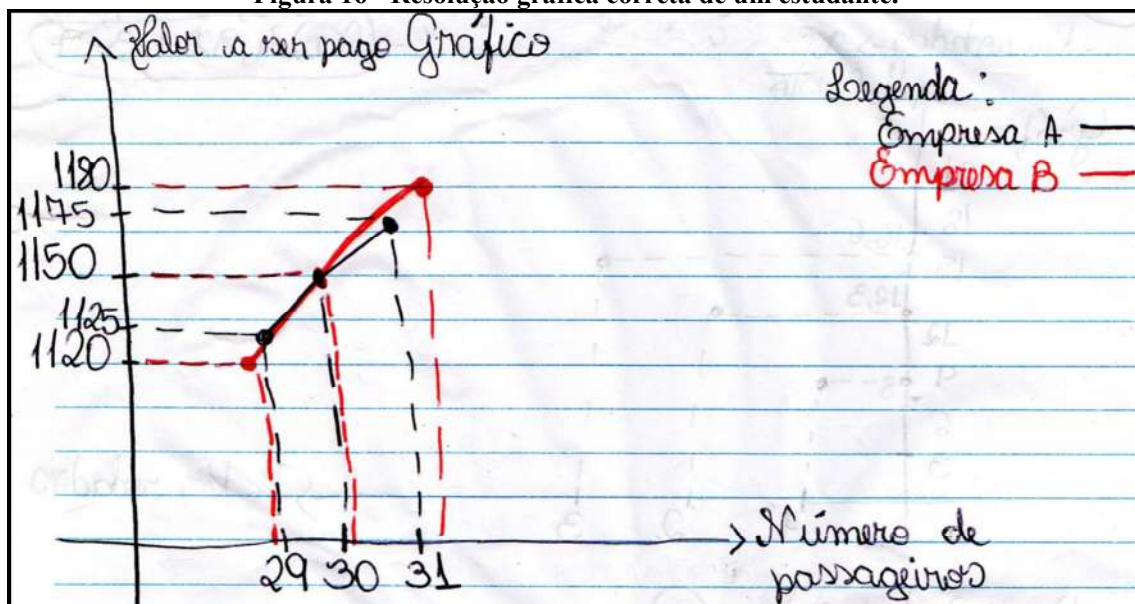 Figura 16 - Resolução gráfica correta de um estudante.
Valor a ser pago Gráfico
Legenda:
Empresa A
Empresa B
1180
1175
1150
1125
1120
29 30 31
Número de
passageiros